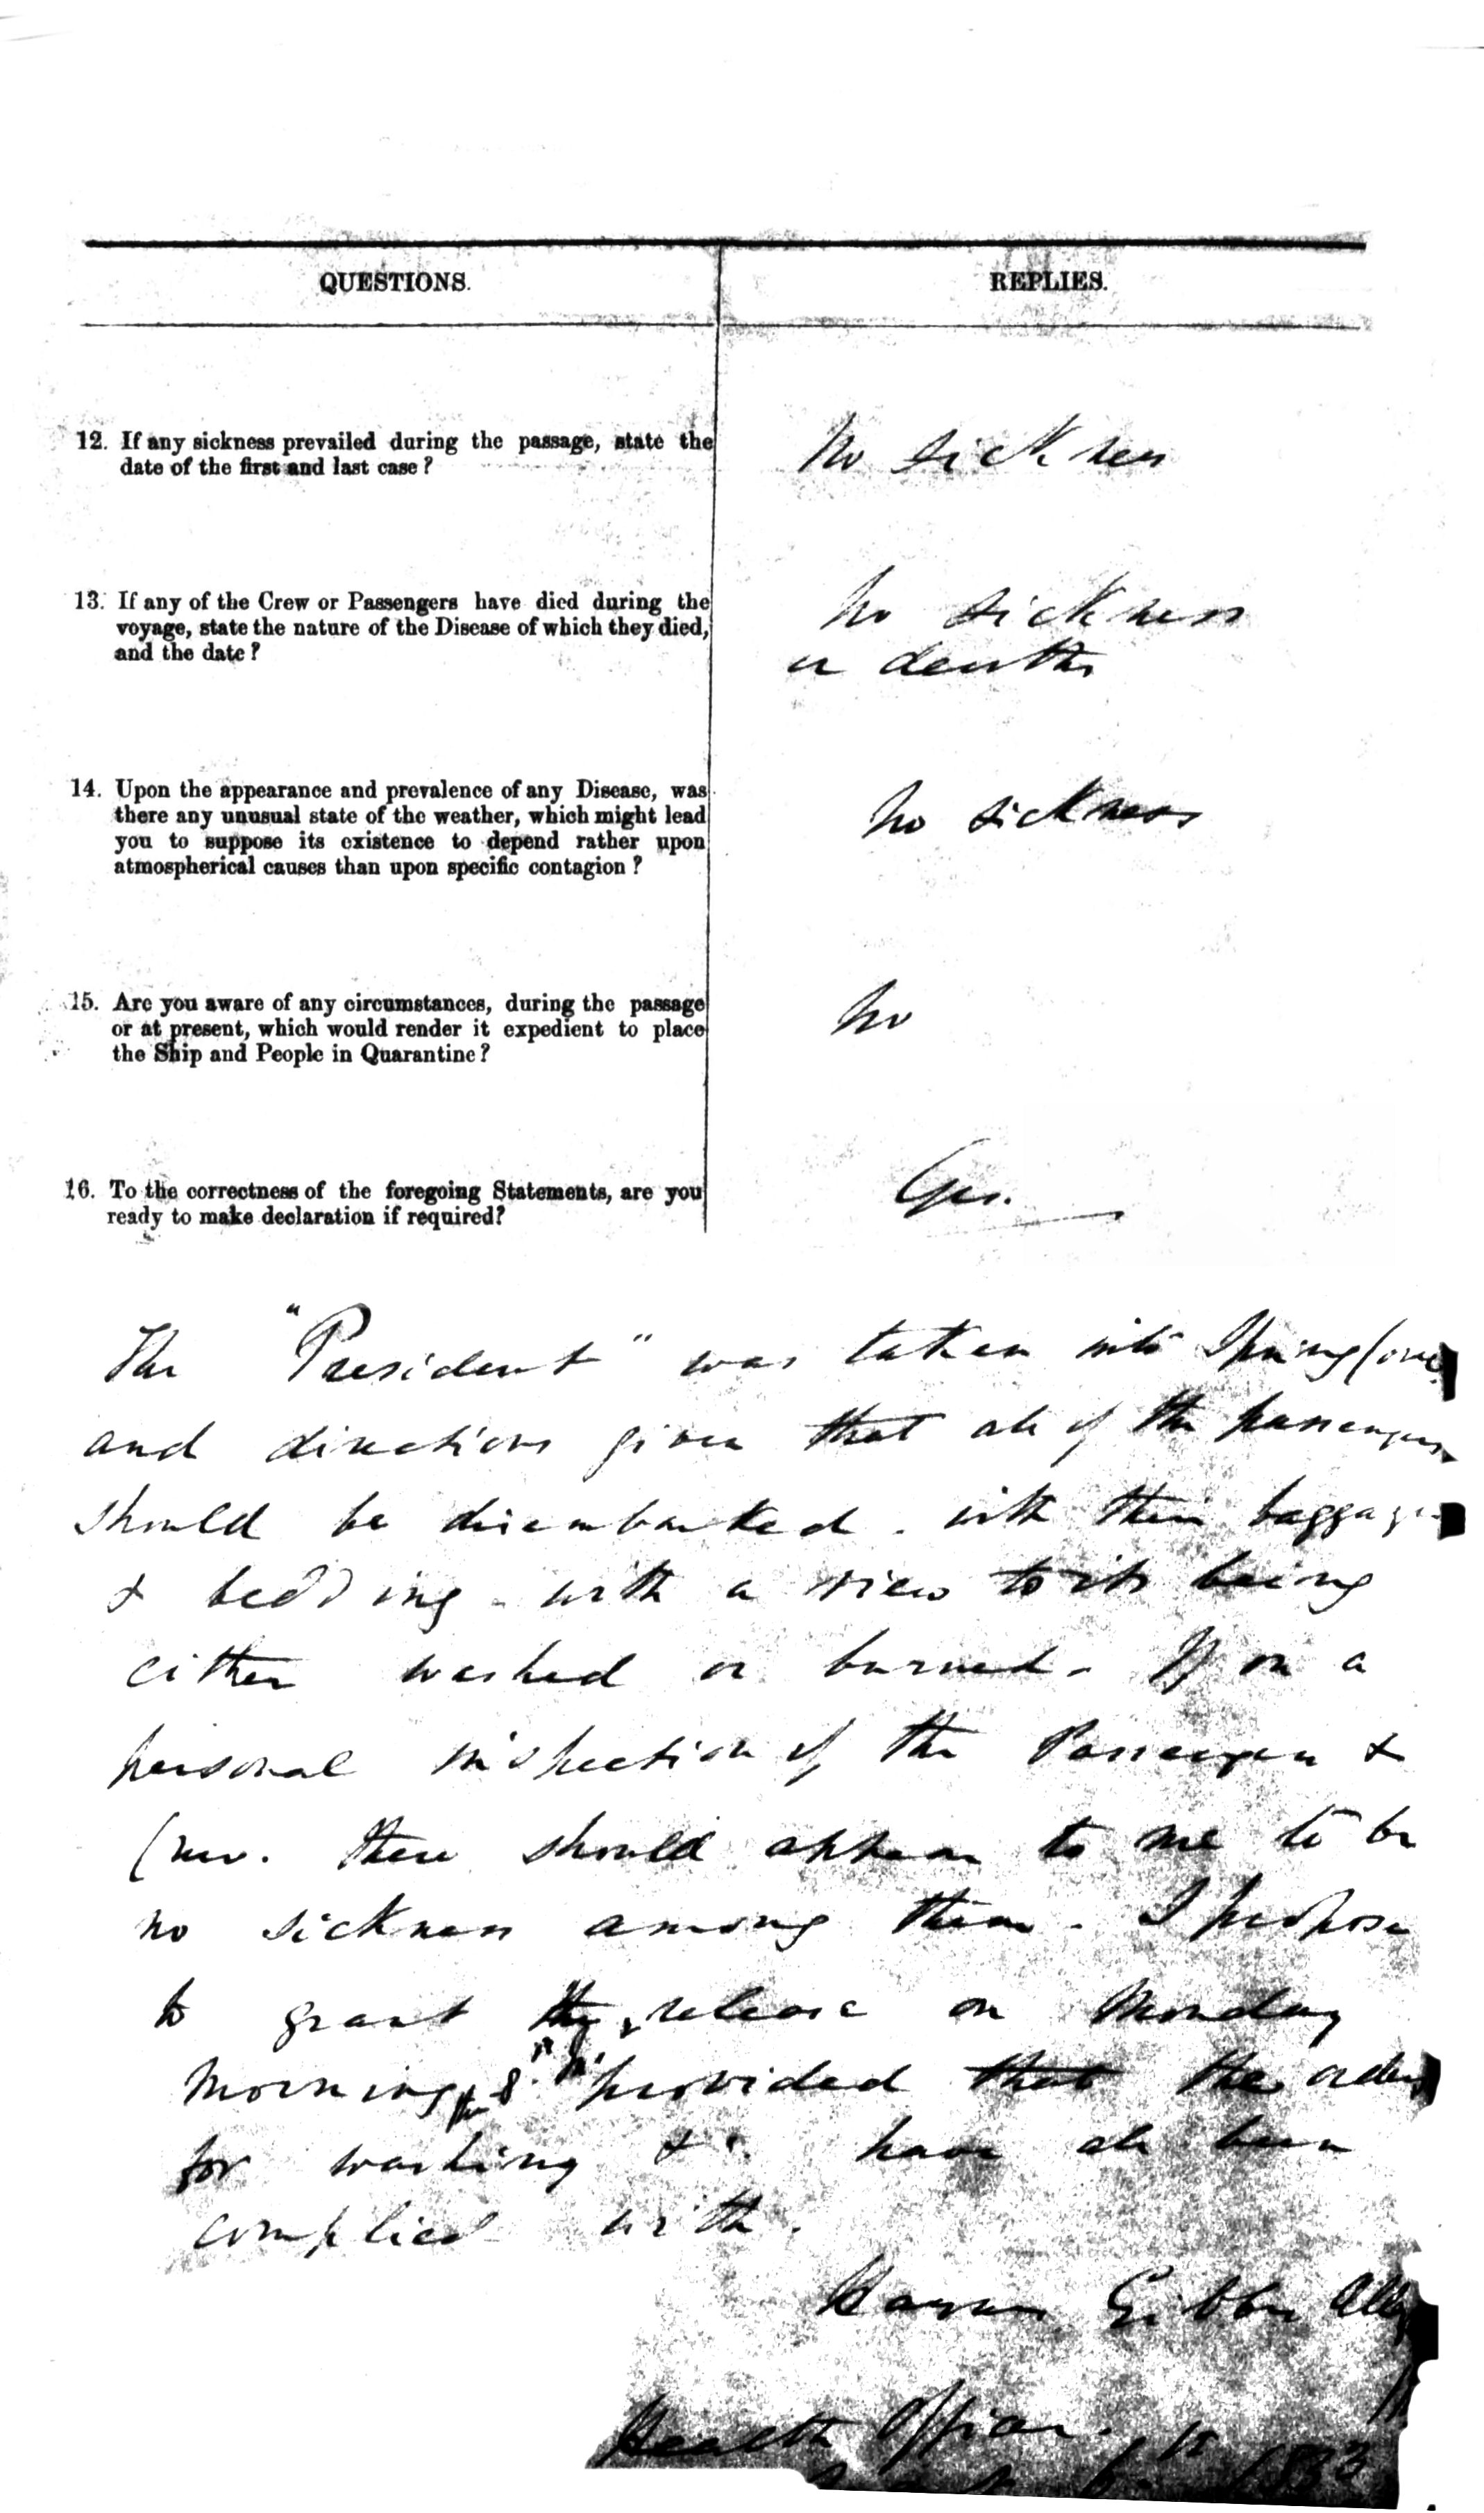 QUESTIONS.
REPLIES.
12. If any sickness prevailed during the passage, state the
date of the first and last case?
No sickness
13. If any of the Crew or Passengers have died during the
voyage, state the nature of the Disease of which they died,
and the date?
No sickness
or deaths
14. Upon the appearance and prevalence of any Disease, was
there any unusual state of the weather, which might lead
you to suppose its existence to depend rather upon
atmospherical causes than upon specific contagion?
No sickness
15. Are you aware of any circumstances, during the passage
or at present, which would render it expedient to place
the Ship and People in Quarantine?
No
16. To the correctness of the foregoing Statements, are you
ready to make declaration if required?
Yes.
The "President" was taken into Spring Cove
and directions given that all of the passengers
should be disembarked - with their baggage
& bedding - with a view to its being
either washed or burned - If on a
personal inspection of the Passengers &
Crew. there should appear to me to be
no sickness among them - I propose
to grant release on Monday
Morning provided that the orders
for washing &c. have all been
complied with.
Haynes Gibbes Alleyne
Health Officer.